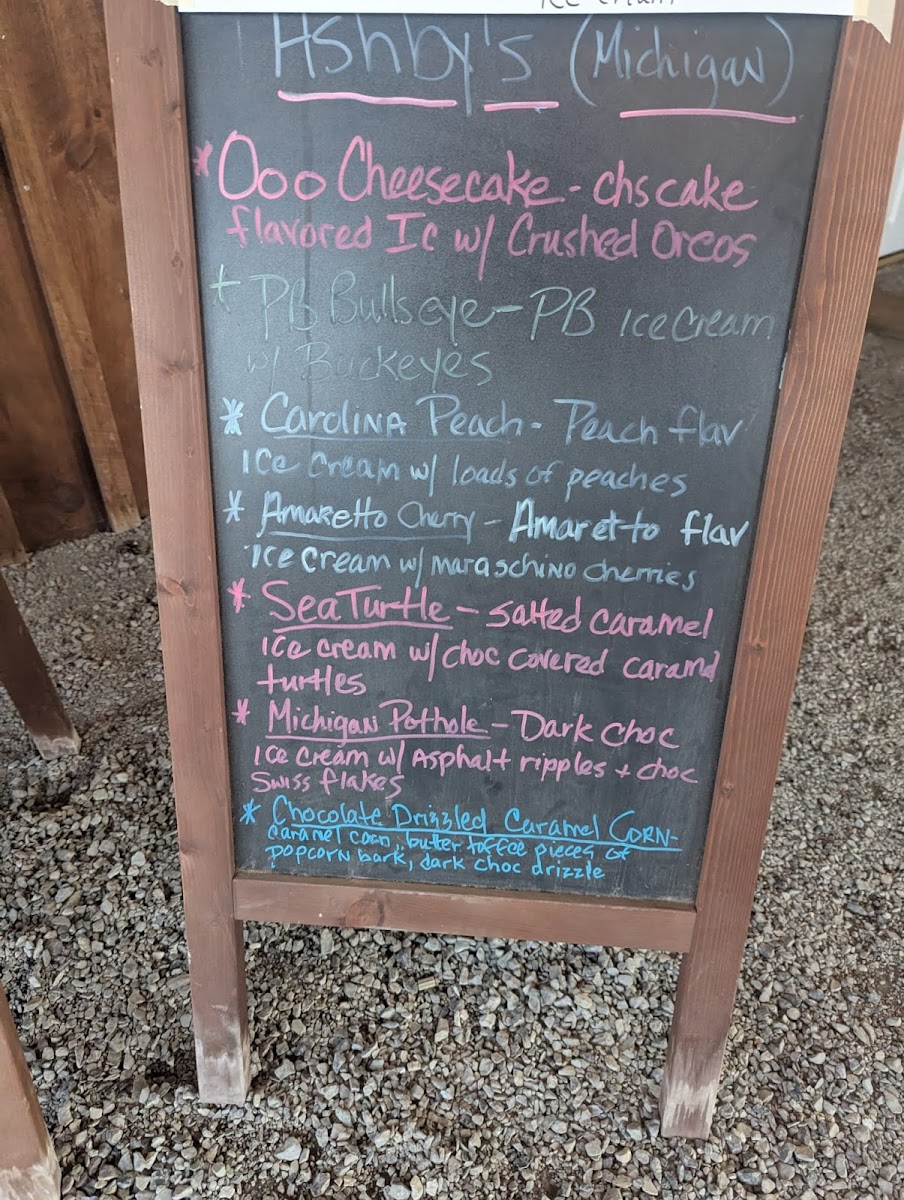 Ice Cream
Ashby's (Michigan)
* Ooo Cheesecake - chscake
flavored Ic w/ Crushed Oreos
* PB Bullseye - PB Ice Cream
w/ Buckeyes
* Carolina Peach - Peach flav
Ice Cream w/ loads of peaches
* Amaretto Cherry - Amaretto flav
Ice Cream w/ maraschino cherries
* Sea Turtle - salted caramel
Ice cream w/ choc covered caramel
turtles
* Michigan Pothole - Dark choc
Ice Cream w/ Asphalt ripples + choc
Swiss flakes
* Chocolate Drizzled Caramel Corn-
caramel corn, butter toffee pieces of
popcorn bark, dark choc drizzle